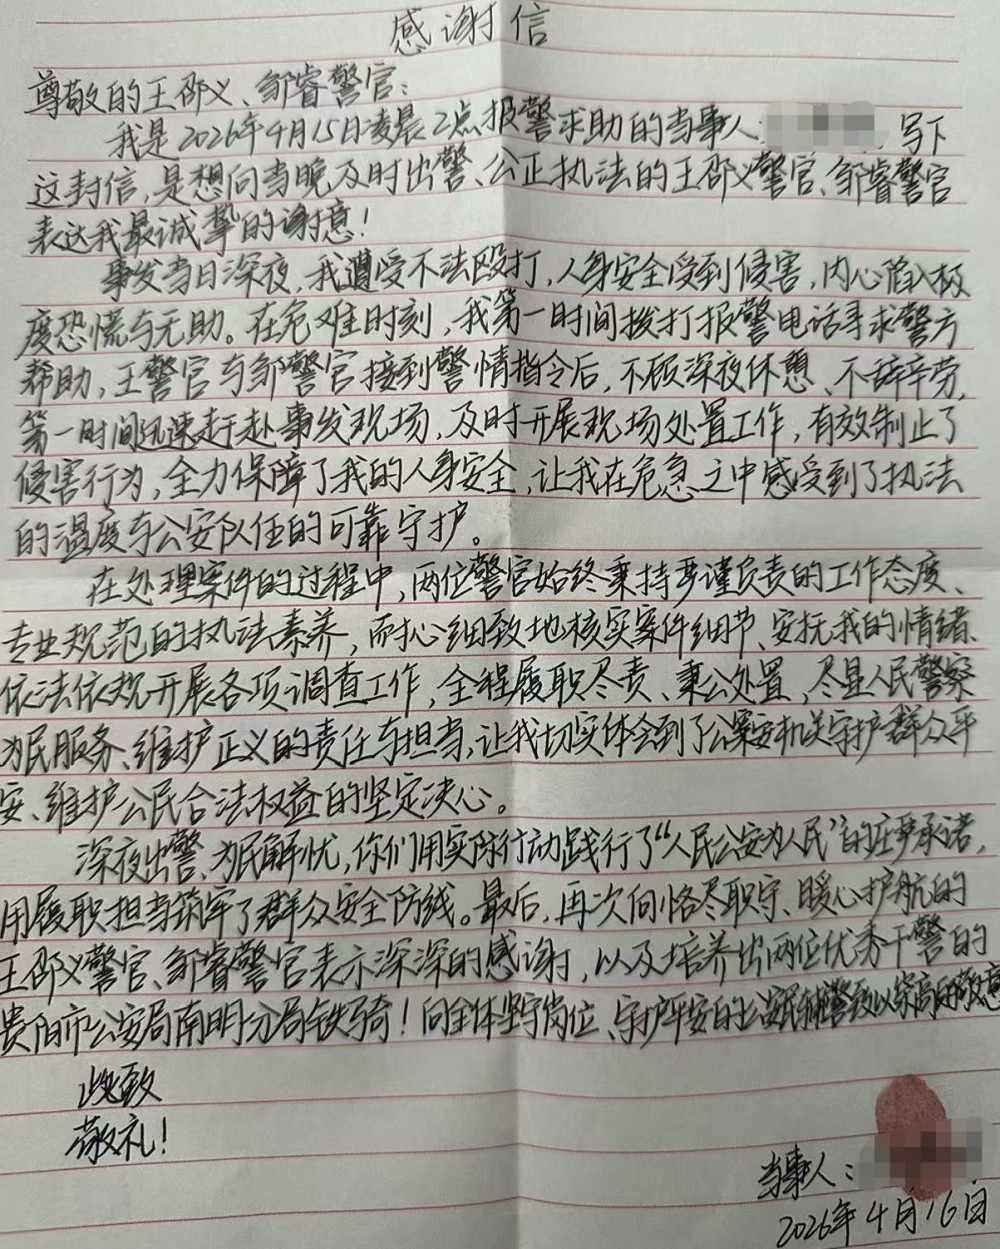 感谢信
尊敬的王邵义、邹睿警官：
我是2026年4月15日凌晨2点报警求助的当事人 ，写下
这封信，是想向当晚及时出警、公正执法的王邵义警官、邹睿警官
表达我最诚挚的谢意！
事发当日深夜，我遭受不法殴打，人身安全受到侵害，内心陷入极
度恐慌与无助。在危难时刻，我第一时间拨打报警电话寻求警方
帮助，王警官与邹警官接到警情指令后，不顾深夜休憩、不辞辛劳，
第一时间迅速赶赴事发现场，及时开展现场处置工作，有效制止了
侵害行为，全力保障了我的人身安全，让我在危急之中感受到了执法
的温度与公安队伍的可靠守护。
在处理案件的过程中，两位警官始终秉持严谨负责的工作态度、
专业规范的执法素养，耐心细致地核实案件细节、安抚我的情绪、
依法依规开展各项调查工作，全程履职尽责、秉公处置，尽显人民警察
为民服务、维护正义的责任与担当，让我切实体会到了公安机关守护群众平
安、维护公民合法权益的坚定决心。
深夜出警、为民解忧，你们用实际行动践行了“人民公安为人民”的庄严承诺，
用履职担当筑牢了群众安全防线。最后，再次向恪尽职守、暖心护航的
王邵义警官、邹睿警官表示深深的感谢，以及培养出两位优秀干警的
贵阳市公安局南明分局铁骑！向全体坚守岗位、守护平安的公安民辅警致以崇高的敬意
此致
敬礼！
当事人：
2026年4月16日